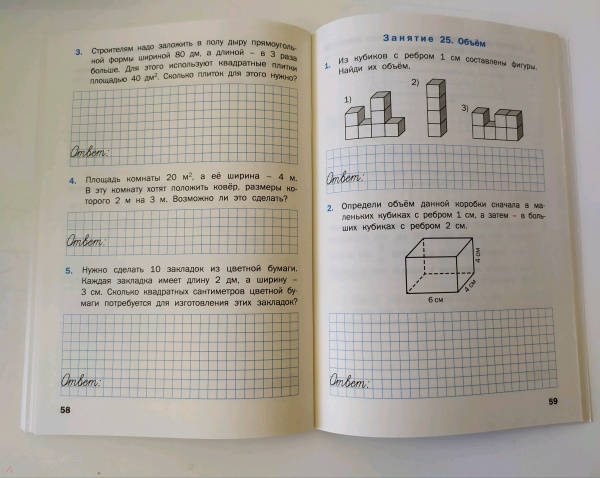 3. Строителям надо заложить в полу дыру прямоуголь-
ной формы шириной 80 дм, а длиной – в 3 раза
больше. Для этого используют квадратные плитки
площадью 40 дм². Сколько плиток для этого нужно?
Ответ:
4. Площадь комнаты 20 м², а её ширина – 4 м.
В эту комнату хотят положить ковёр, размеры ко-
торого 2 м на 3 м. Возможно ли это сделать?
Ответ:
5. Нужно сделать 10 закладок из цветной бумаги.
Каждая закладка имеет длину 2 дм, а ширину –
3 см. Сколько квадратных сантиметров цветной бу-
маги потребуется для изготовления этих закладок?
Ответ:
58
Занятие 25. Объём
1. Из кубиков с ребром 1 см составлены фигуры.
Найди их объём.
1)
2)
3)
Ответ:
2. Определи объём данной коробки сначала в ма-
леньких кубиках с ребром 1 см, а затем – в боль-
ших кубиках с ребром 2 см.
4 см
4 см
6 см
Ответ:
59